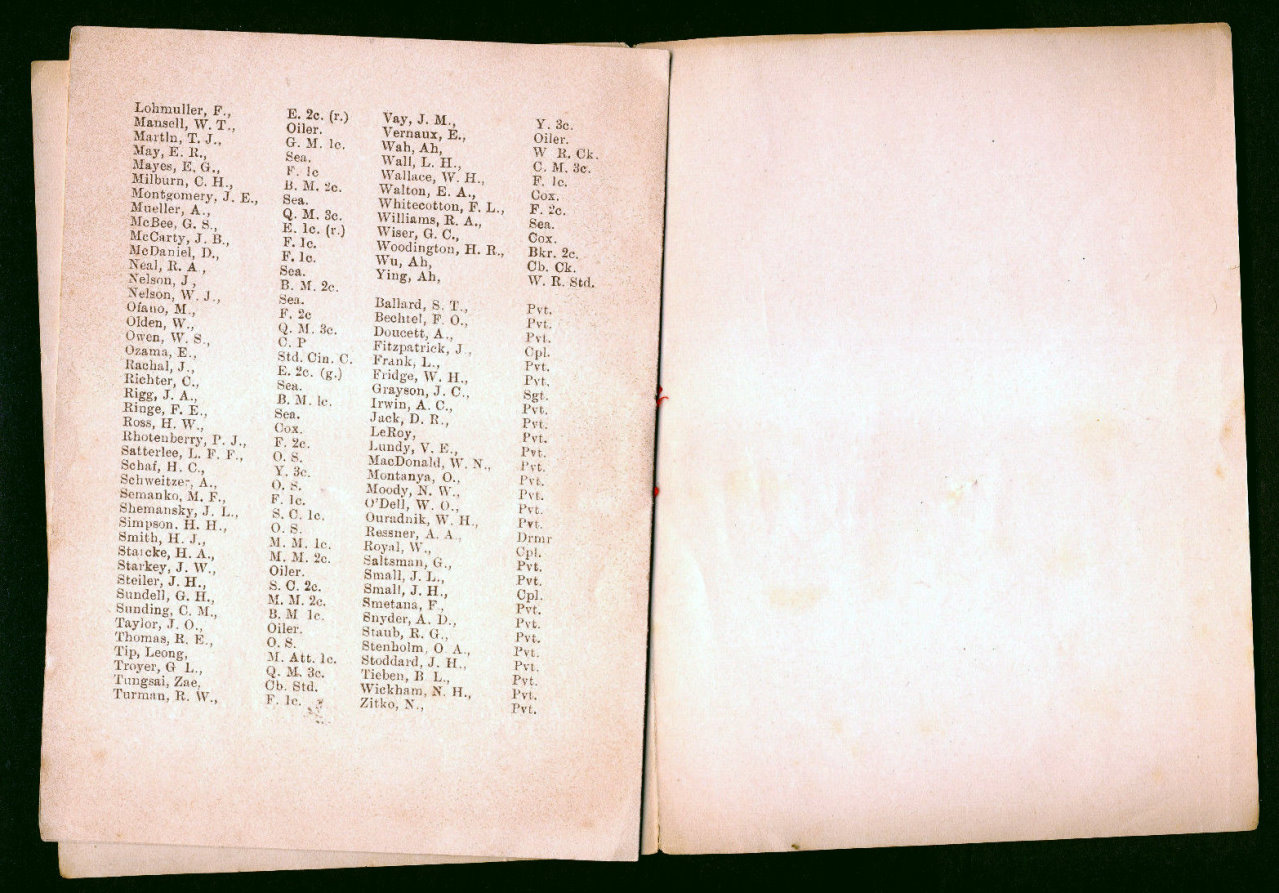 Lohmuller, F., E. 2c. (r.)
Mansell, W. T., Oiler.
Martin, T. J., G. M. 1c.
May, E. R., Sea.
Mayes, E. G., F. 1c
Milburn, C. H., B. M. 2c.
Montgomery, J. E., Sea.
Mueller, A., Q. M. 3c.
McBee, G. S., E. 1c. (r.)
McCarty, J. B., F. 1c.
McDaniel, D., F. 1c.
Neal, R. A , Sea.
Nelson, J , B. M. 2c.
Nelson, W. J., Sea.
Ofano, M., F. 2c
Olden, W., Q. M. 3c.
Owen, W. S., C. P
Ozama, E., Std. Cin. C.
Rachal, J., E. 2c. (g.)
Richter, C., Sea.
Rigg, J. A., B. M. 1c.
Ringe, F. E., Sea.
Ross, H. W., Cox.
Rhotenberry, P. J., F. 2c.
Satterlee, L. F. F., O. S.
Schaf, H. C., Y. 3c.
Schweitzer, A., O. S.
Semanko, M. F., F. 1c.
Shemansky, J. L., S. C. 1c.
Simpson. H. H., O. S.
Smith, H. J., M. M. 1c.
Starcke, H. A., M. M. 2c.
Starkey, J. W., Oiler.
Steiler, J. H., S. C. 2c.
Sundell, G. H., M. M. 2c.
Sunding, C. M., B. M 1c.
Taylor, J. O., Oiler.
Thomas, R. E., O. S.
Tip, Leong, M. Att. 1c.
Troyer, G L., Q. M. 3c.
Tungsai, Zae, Cb. Std.
Turman, R. W., F. 1c.
Vay, J. M., Y. 3c.
Vernaux, E., Oiler.
Wah, Ah, W R. Ck.
Wall, L. H., C. M. 3c.
Wallace, W. H., F. 1c.
Walton, E. A., Cox.
Whitecotton, F. L., F. 2c.
Williams, R. A., Sea.
Wiser, G. C., Cox.
Woodington, H. R., Bkr. 2c.
Wu, Ah, Cb. Ck.
Ying, Ah, W. R. Std.
Ballard, S. T., Pvt.
Bechtel, F. O., Pvt.
Doucett, A., Pvt.
Fitzpatrick, J , Cpl.
Frank, L., Pvt.
Fridge, W. H., Pvt.
Grayson, J. C., Sgt.
Irwin, A. C., Pvt.
Jack, D. R., Pvt.
LeRoy, Pvt.
Lundy, V. E., Pvt.
MacDonald, W. N., Pvt.
Montanya, O., Pvt.
Moody, N. W., Pvt.
O'Dell, W. O., Pvt.
Ouradnik, W. H., Pvt.
Ressner, A. A , Drmr
Royal, W., Cpl.
Saltsman, G., Pvt.
Small, J. L., Pvt.
Small, J. H., Cpl.
Smetana, F , Pvt.
Snyder, A. D., Pvt.
Staub, R. G., Pvt.
Stenholm, O A., Pvt.
Stoddard, J. H., Pvt.
Tieben, B L., Pvt.
Wickham, N. H., Pvt.
Zitko, N., Pvt.